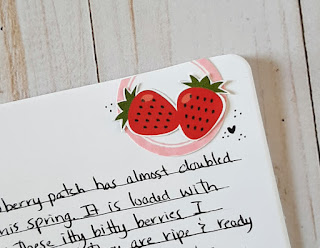 berry patch has almost doubled
this spring. It is loaded with
These itty bitty berries I
are ripe & ready